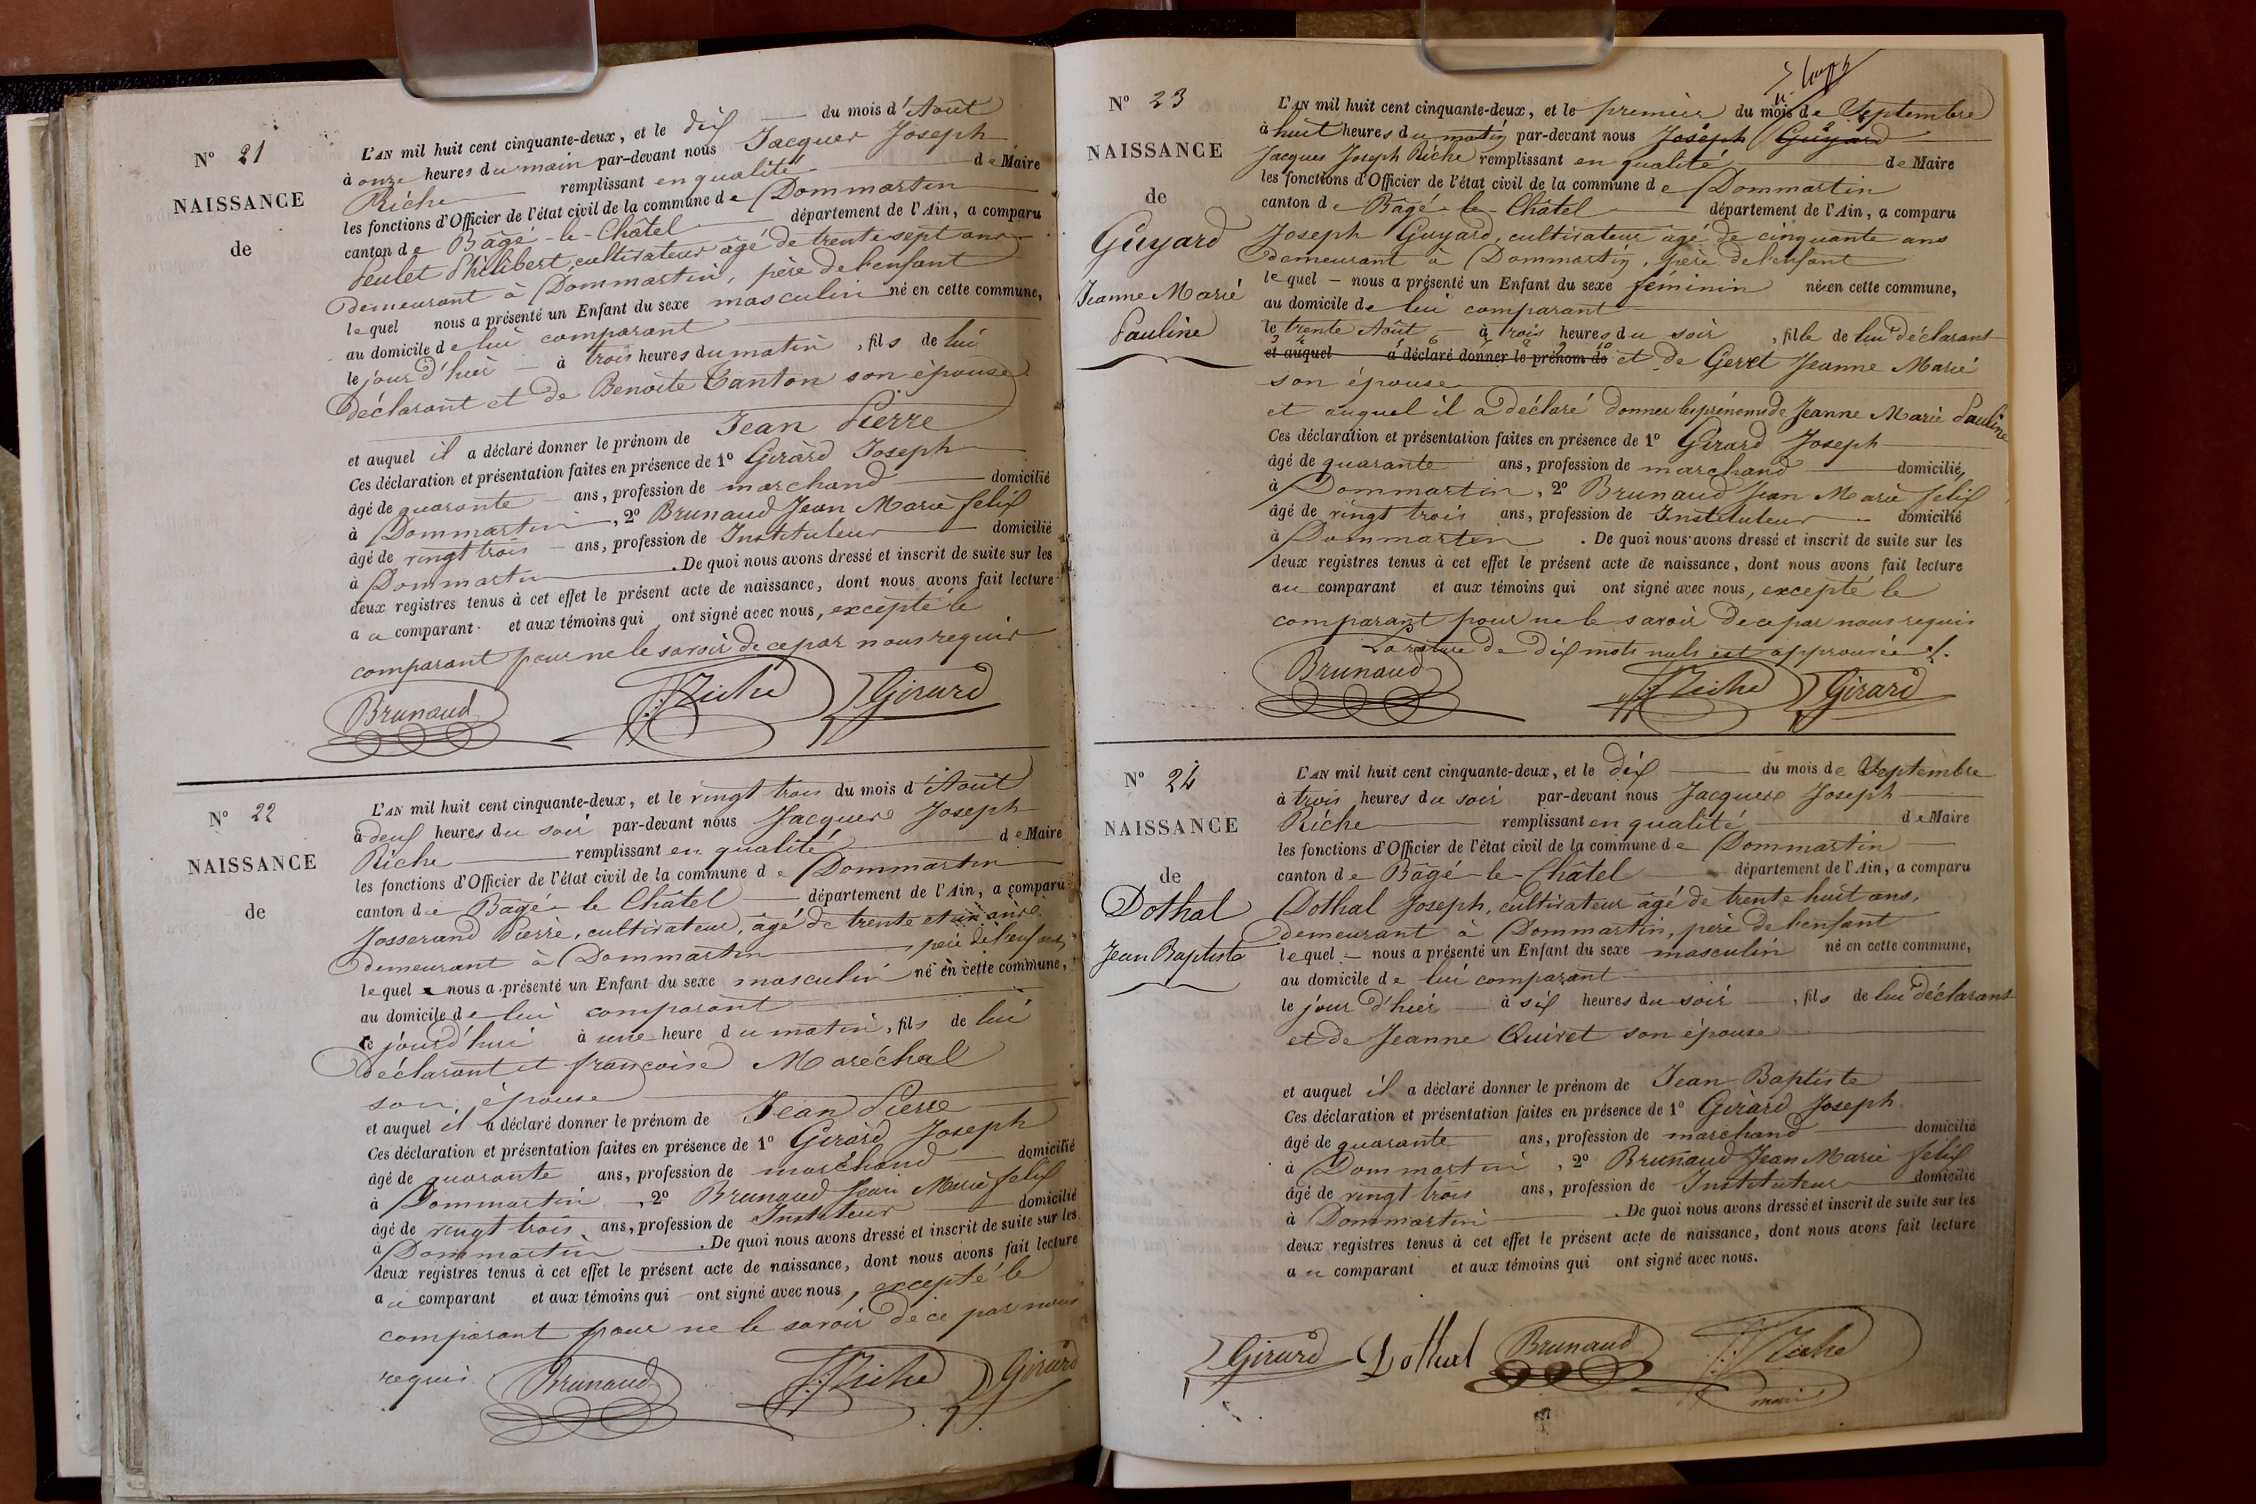 N° 21
NAISSANCE
de
L'AN mil huit cent cinquante-deux, et le dix du mois d'Août
à onze heures du main par-devant nous Jacques Joseph
Riche remplissant en qualité de Maire
les fonctions d'Officier de l'état civil de la commune de Dommartin
canton de Bâgé-le-Châtel département de l'Ain, a comparu
Feulet Philibert, cultivateur âgé de trente sept ans
demeurant à Dommartin, père de l'enfant
lequel nous a présenté un Enfant du sexe masculin né en cette commune,
au domicile de lui comparant
le jour d'hier à trois heures du matin, fils de lui
déclarant et de Benoîte Canton son épouse
et auquel il a déclaré donner le prénom de Jean Pierre
Ces déclaration et présentation faites en présence de 1° Girard Joseph
âgé de quarante ans, profession de marchand domicilié
à Dommartin, 2° Brunaud Jean Marie felix
âgé de vingt trois ans, profession de Instituteur domicilié
à Dommartin . De quoi nous avons dressé et inscrit de suite sur les
deux registres tenus à cet effet le présent acte de naissance, dont nous avons fait lecture
au comparant et aux témoins qui ont signé avec nous, excepté le
comparant pour ne le savoir de ce par nous requis
Brunaud J: J Riche Girard
N° 22
NAISSANCE
de
L'AN mil huit cent cinquante-deux, et le vingt trois du mois d'Août
à deux heures du soir par-devant nous Jacques Joseph
Riche remplissant en qualité de Maire
les fonctions d'Officier de l'état civil de la commune de Dommartin
canton de Bâgé-le Châtel département de l'Ain, a comparu
Josserand Pierre, cultivateur, âgé de trente et un ans
demeurant à Dommartin père de l'enfant,
lequel nous a présenté un Enfant du sexe masculin né en cette commune,
au domicile de lui comparant
ce jourd'hui à une heure du matin, fils de lui
déclarant et françoise Maréchal
son épouse
et auquel il a déclaré donner le prénom de Jean Pierre
Ces déclaration et présentation faites en présence de 1° Girard Joseph
âgé de quarante ans, profession de marchand domicilié
à Dommartin , 2° Brunaud Jean Marie felix
âgé de vingt trois ans, profession de Instituteur domicilié
à Dommartin . De quoi nous avons dressé et inscrit de suite sur les
deux registres tenus à cet effet le présent acte de naissance, dont nous avons fait lecture
au comparant et aux témoins qui ont signé avec nous, excepté le
comparant pour ne le savoir de ce par nous
requis
Brunaud J: J Riche Girard
N° 23
NAISSANCE
de
Guyard
Jeanne Marie
Pauline
L'AN mil huit cent cinquante-deux, et le premier du mois de Septembre
à huit heures du matin par-devant nous Joseph Guyard
Jacques Joseph Riche remplissant en qualité de Maire
les fonctions d'Officier de l'état civil de la commune de Dommartin
canton de Bâgé-le-Châtel département de l'Ain, a comparu
Joseph Guyard, cultivateur âgé de cinquante ans
demeurant à Dommartin, père de l'enfant
lequel nous a présenté un Enfant du sexe féminin née en cette commune,
au domicile de lui comparant
le trente Août à trois heures du soir , fille de lui déclarant
et auquel a déclaré donner le prénom de et de Geret Jeanne Marie
son épouse
et auquel il a déclaré donner les prénoms de Jeanne Marie Pauline
Ces déclaration et présentation faites en présence de 1° Girard Joseph
âgé de quarante ans, profession de marchand domicilié,
à Dommartin, 2° Brunaud Jean Marie felix
âgé de vingt trois ans, profession de Instituteur domicilié
à Dommartin . De quoi nous avons dressé et inscrit de suite sur les
deux registres tenus à cet effet le présent acte de naissance, dont nous avons fait lecture
au comparant et aux témoins qui ont signé avec nous, excepté le
comparant pour ne le savoir de ce par nous requis
La rature de dix mots nuls est approuvée
Brunaud J: J Riche Girard
N° 24
NAISSANCE
de
Dothal
Jean Baptiste
L'AN mil huit cent cinquante-deux, et le dix du mois de Septembre
à trois heures du soir par-devant nous Jacques Joseph
Riche remplissant en qualité de Maire
les fonctions d'Officier de l'état civil de la commune de Dommartin
canton de Bâgé-le-Châtel département de l'Ain, a comparu
Dothal Joseph, cultivateur âgé de trente huit ans,
demeurant à Dommartin, père de l'enfant
lequel nous a présenté un Enfant du sexe masculin né en cette commune,
au domicile de lui comparant
le jour d'hier à six heures du soir , fils de lui déclarant
et de Jeanne Quivet son épouse
et auquel il a déclaré donner le prénom de Jean Baptiste
Ces déclaration et présentation faites en présence de 1° Girard Joseph
âgé de quarante ans, profession de marchand domicilié
à Dommartin , 2° Brunaud Jean Marie felix
âgé de vingt trois ans, profession de Instituteur domicilié
à Dommartin . De quoi nous avons dressé et inscrit de suite sur les
deux registres tenus à cet effet le présent acte de naissance, dont nous avons fait lecture
au comparant et aux témoins qui ont signé avec nous.
Girard Dothal Brunaud J: J Riche
maire